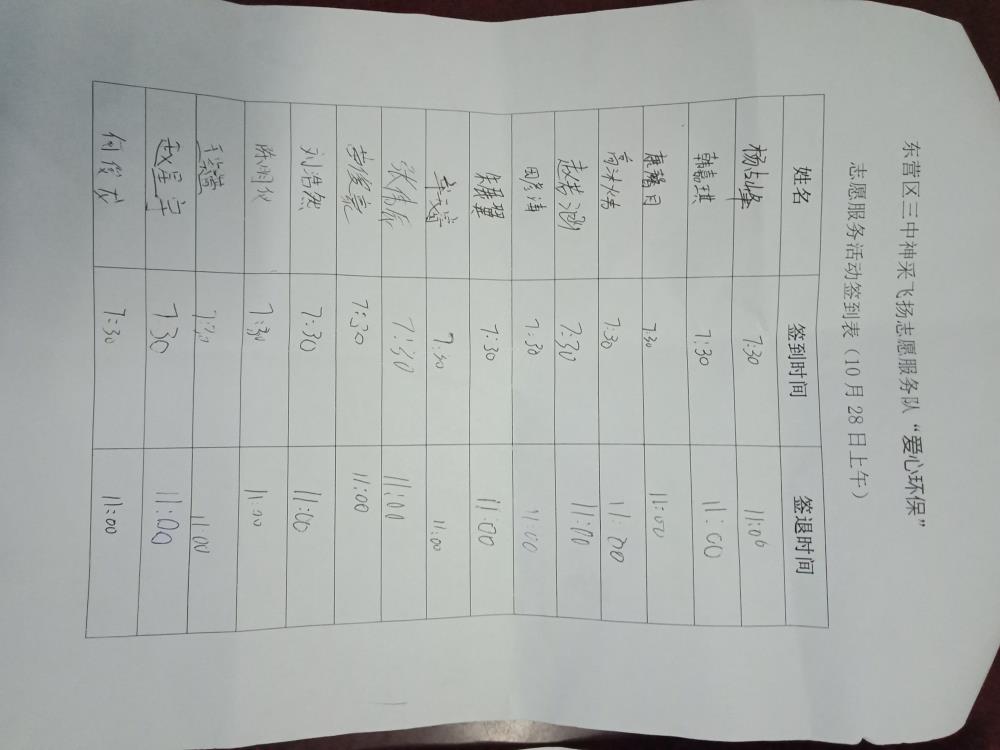 东营区三中神采飞扬志愿服务队“爱心环保”
志愿服务活动签到表（10月28日上午）
姓名 签到时间 签退时间
杨占峰 7:30 11:00
韩嘉琪 7:30 11:00
康馨月 7:30 11:00
高 7:30 11:00
赵 7:30 11:00
田彦涛 7:30 11:00
翼 7:30 11:00
7:30 11:00
张 7:30 11:00
7:30 11:00
刘浩然 7:30 11:00
陈明 7:30 11:00
7:30 11:00
赵星宇 7:30 11:00
何俊成 7:30 11:00